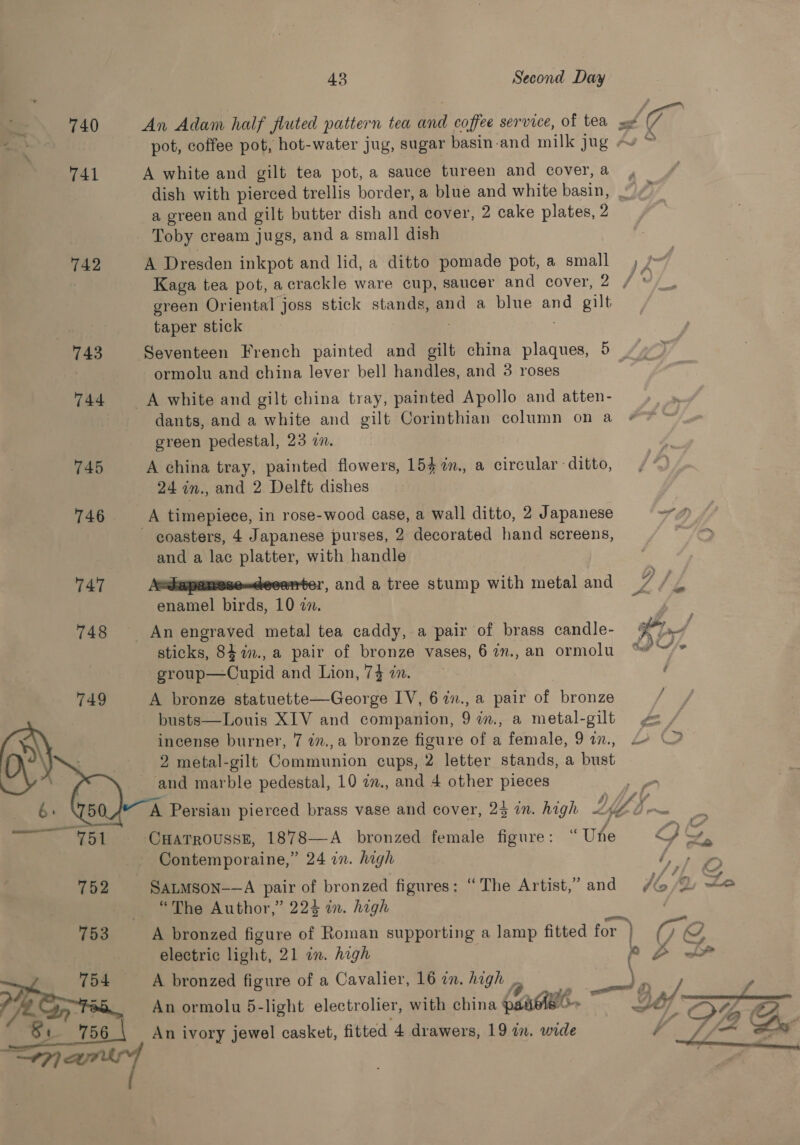 43 Second Day
740 An Adam half fluted pattern tea and coffee service, of tea
pot, coffee pot, hot-water jug, sugar basin and milk jug
741 A white and gilt tea pot, a sauce tureen and cover, a
dish with pierced trellis border, a blue and white basin,
a green and gilt butter dish and cover, 2 cake plates, 2
Toby cream jugs, and a small dish
742 A Dresden inkpot and lid, a ditto pomade pot, a small
Kaga tea pot, a crackle ware cup, saucer and cover, 2
green Oriental joss stick stands, and a blue and gilt
taper stick
743 Seventeen French painted and gilt china plaques, 5
ormolu and china lever bell handles, and 3 roses
744 A white and gilt china tray, painted Apollo and atten-
dants, and a white and gilt Corinthian column on a
green pedestal, 23 in.
745 A china tray, painted flowers, 15½ in., a circular ditto,
24 in., and 2 Delft dishes
746 A timepiece, in rose-wood case, a wall ditto, 2 Japanese
coasters, 4 Japanese purses, 2 decorated hand screens,
and a lac platter, with handle
747 A Japanese decanter, and a tree stump with metal and
enamel birds, 10 in.
748 An engraved metal tea caddy, a pair of brass candle-
sticks, 8½ in., a pair of bronze vases, 6 in., an ormolu
group—Cupid and Lion, 7½ in.
749 A bronze statuette—George IV, 6 in., a pair of bronze
busts—Louis XIV and companion, 9 in., a metal-gilt
incense burner, 7 in., a bronze figure of a female, 9 in.,
2 metal-gilt Communion cups, 2 letter stands, a bust
and marble pedestal, 10 in., and 4 other pieces
750 A Persian pierced brass vase and cover, 2½ in. high
751 CHATROUSSE, 1878—A bronzed female figure: "Une
Contemporaine," 24 in. high
752 SALMSON—A pair of bronzed figures: "The Artist," and
"The Author," 22½ in. high
753 A bronzed figure of Roman supporting a lamp fitted for
electric light, 21 in. high
754 A bronzed figure of a Cavalier, 16 in. high
755 An ormolu 5-light electrolier, with china
756 An ivory jewel casket, fitted 4 drawers, 19 in. wide